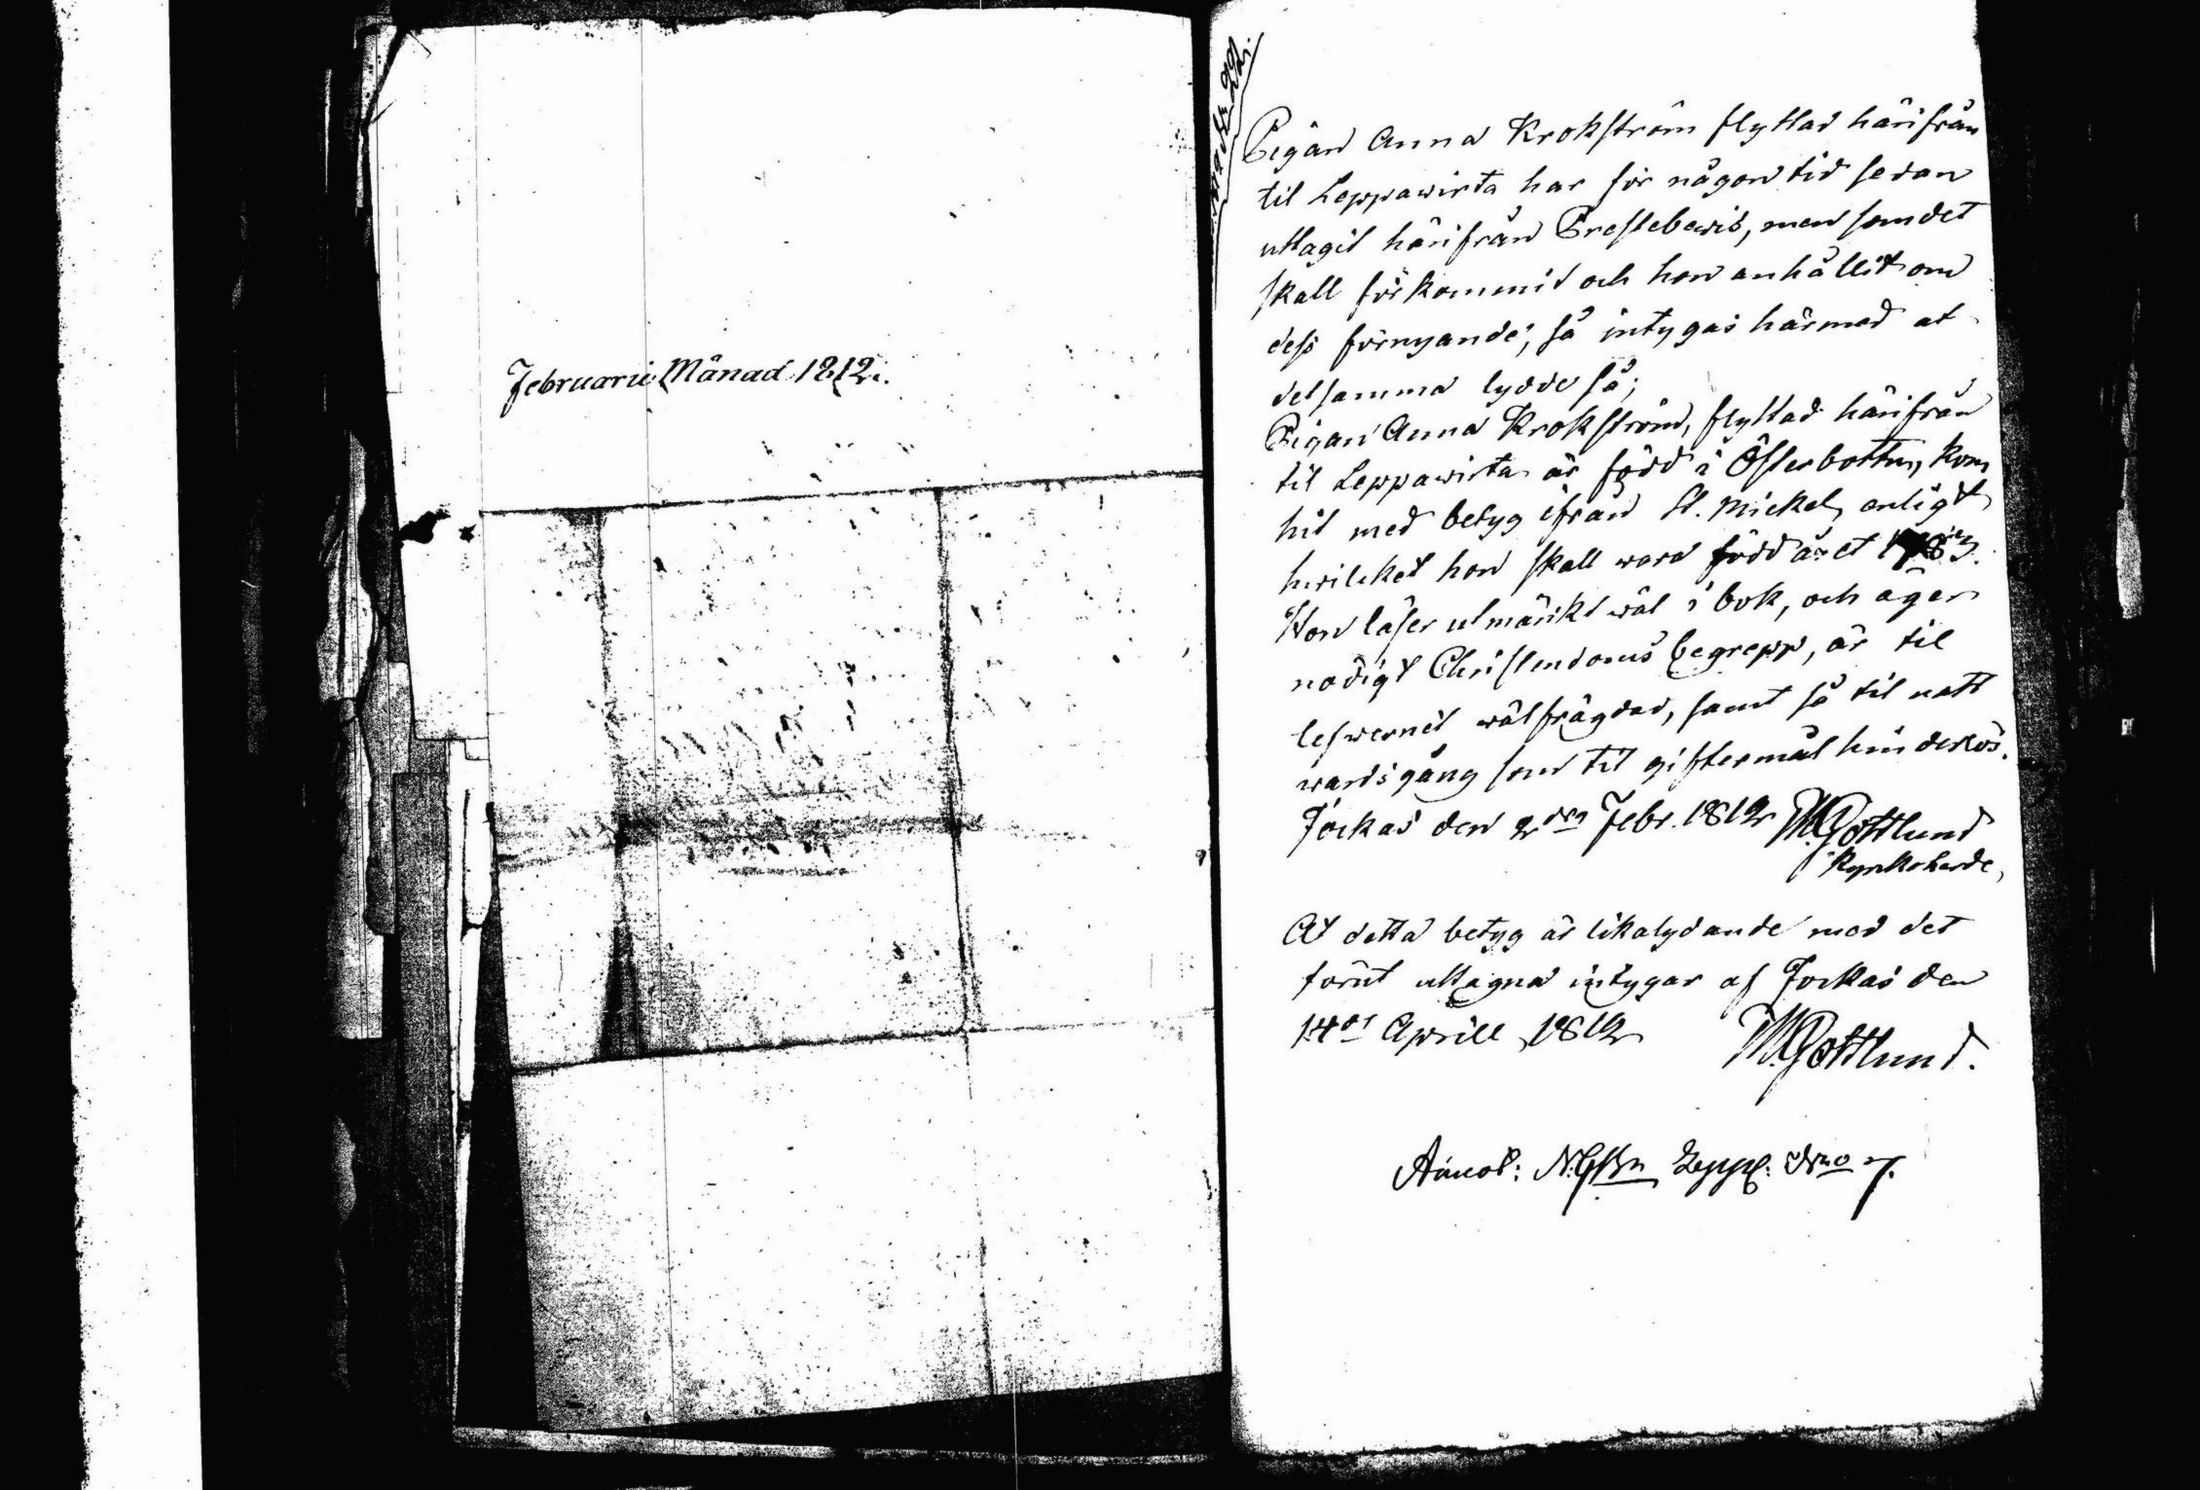 Februarii Månad 1812.
Pigan Anna Krokström flyttad härifrån
til Leppawirta har för någon tid sedan
uttagit härifrån Prestebewis, men som det
skall förkommit och hon anhållit om
dess förnyande, så intygas härmed at
detsamma lydde så;
Pigan Anna Krokström, flyttad härifrån
til Leppawirta är född i Österbotten, kom
hit med betyg ifrån St. Mickel, enligt
hwilket hon skall wara född året
Hon läser utmärkt wäl i bok, och äger
nödigt Christendoms begrepp, är til
lefwernet wälfrägdad, samt så til natt
wardsgång som til giftermål hinderlös.
Jockas den 2den Febr. 1812 M. Gottlund
Kyrkoherde,
At detta betyg är likalydande med det
förut uttagna intygar af Jockas den
14de Aprill 1812 M. Gottlund.